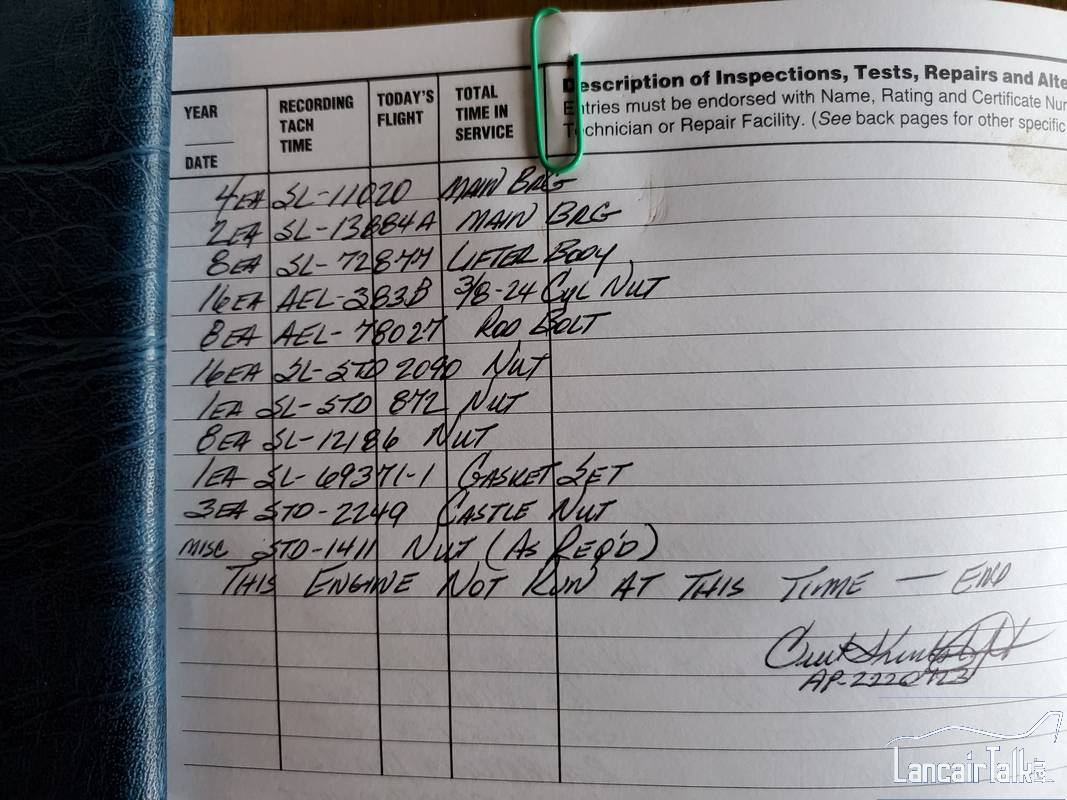 YEAR
DATE
RECORDING
TACH
TIME
TODAY'S
FLIGHT
TOTAL
TIME IN
SERVICE
Description of Inspections, Tests, Repairs and Alte
Entries must be endorsed with Name, Rating and Certificate Nu
Technician or Repair Facility. (See back pages for other specific
4EA SL-11020 MAIN BRG
2EA SL-13884A MAIN BRG
8EA SL-72877 LIFTER BODY
16EA AEL-383B 3/8-24 CYL NUT
8EA AEL-78027 ROD BOLT
16EA SL-STD 2090 NUT
1EA SL-STD 872 NUT
8EA SL-12186 NUT
1EA SL-69371-1 GASKET SET
3EA STD-2249 CASTLE NUT
MISC STD-1411 NUT (AS REQ'D)
THIS ENGINE NOT RUN AT THIS TIME — END
LancairTalk